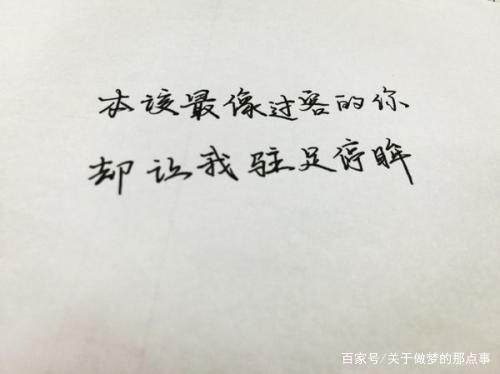 本该最像过客的你
却让我驻足停眸
百家号/关于做梦的那点事